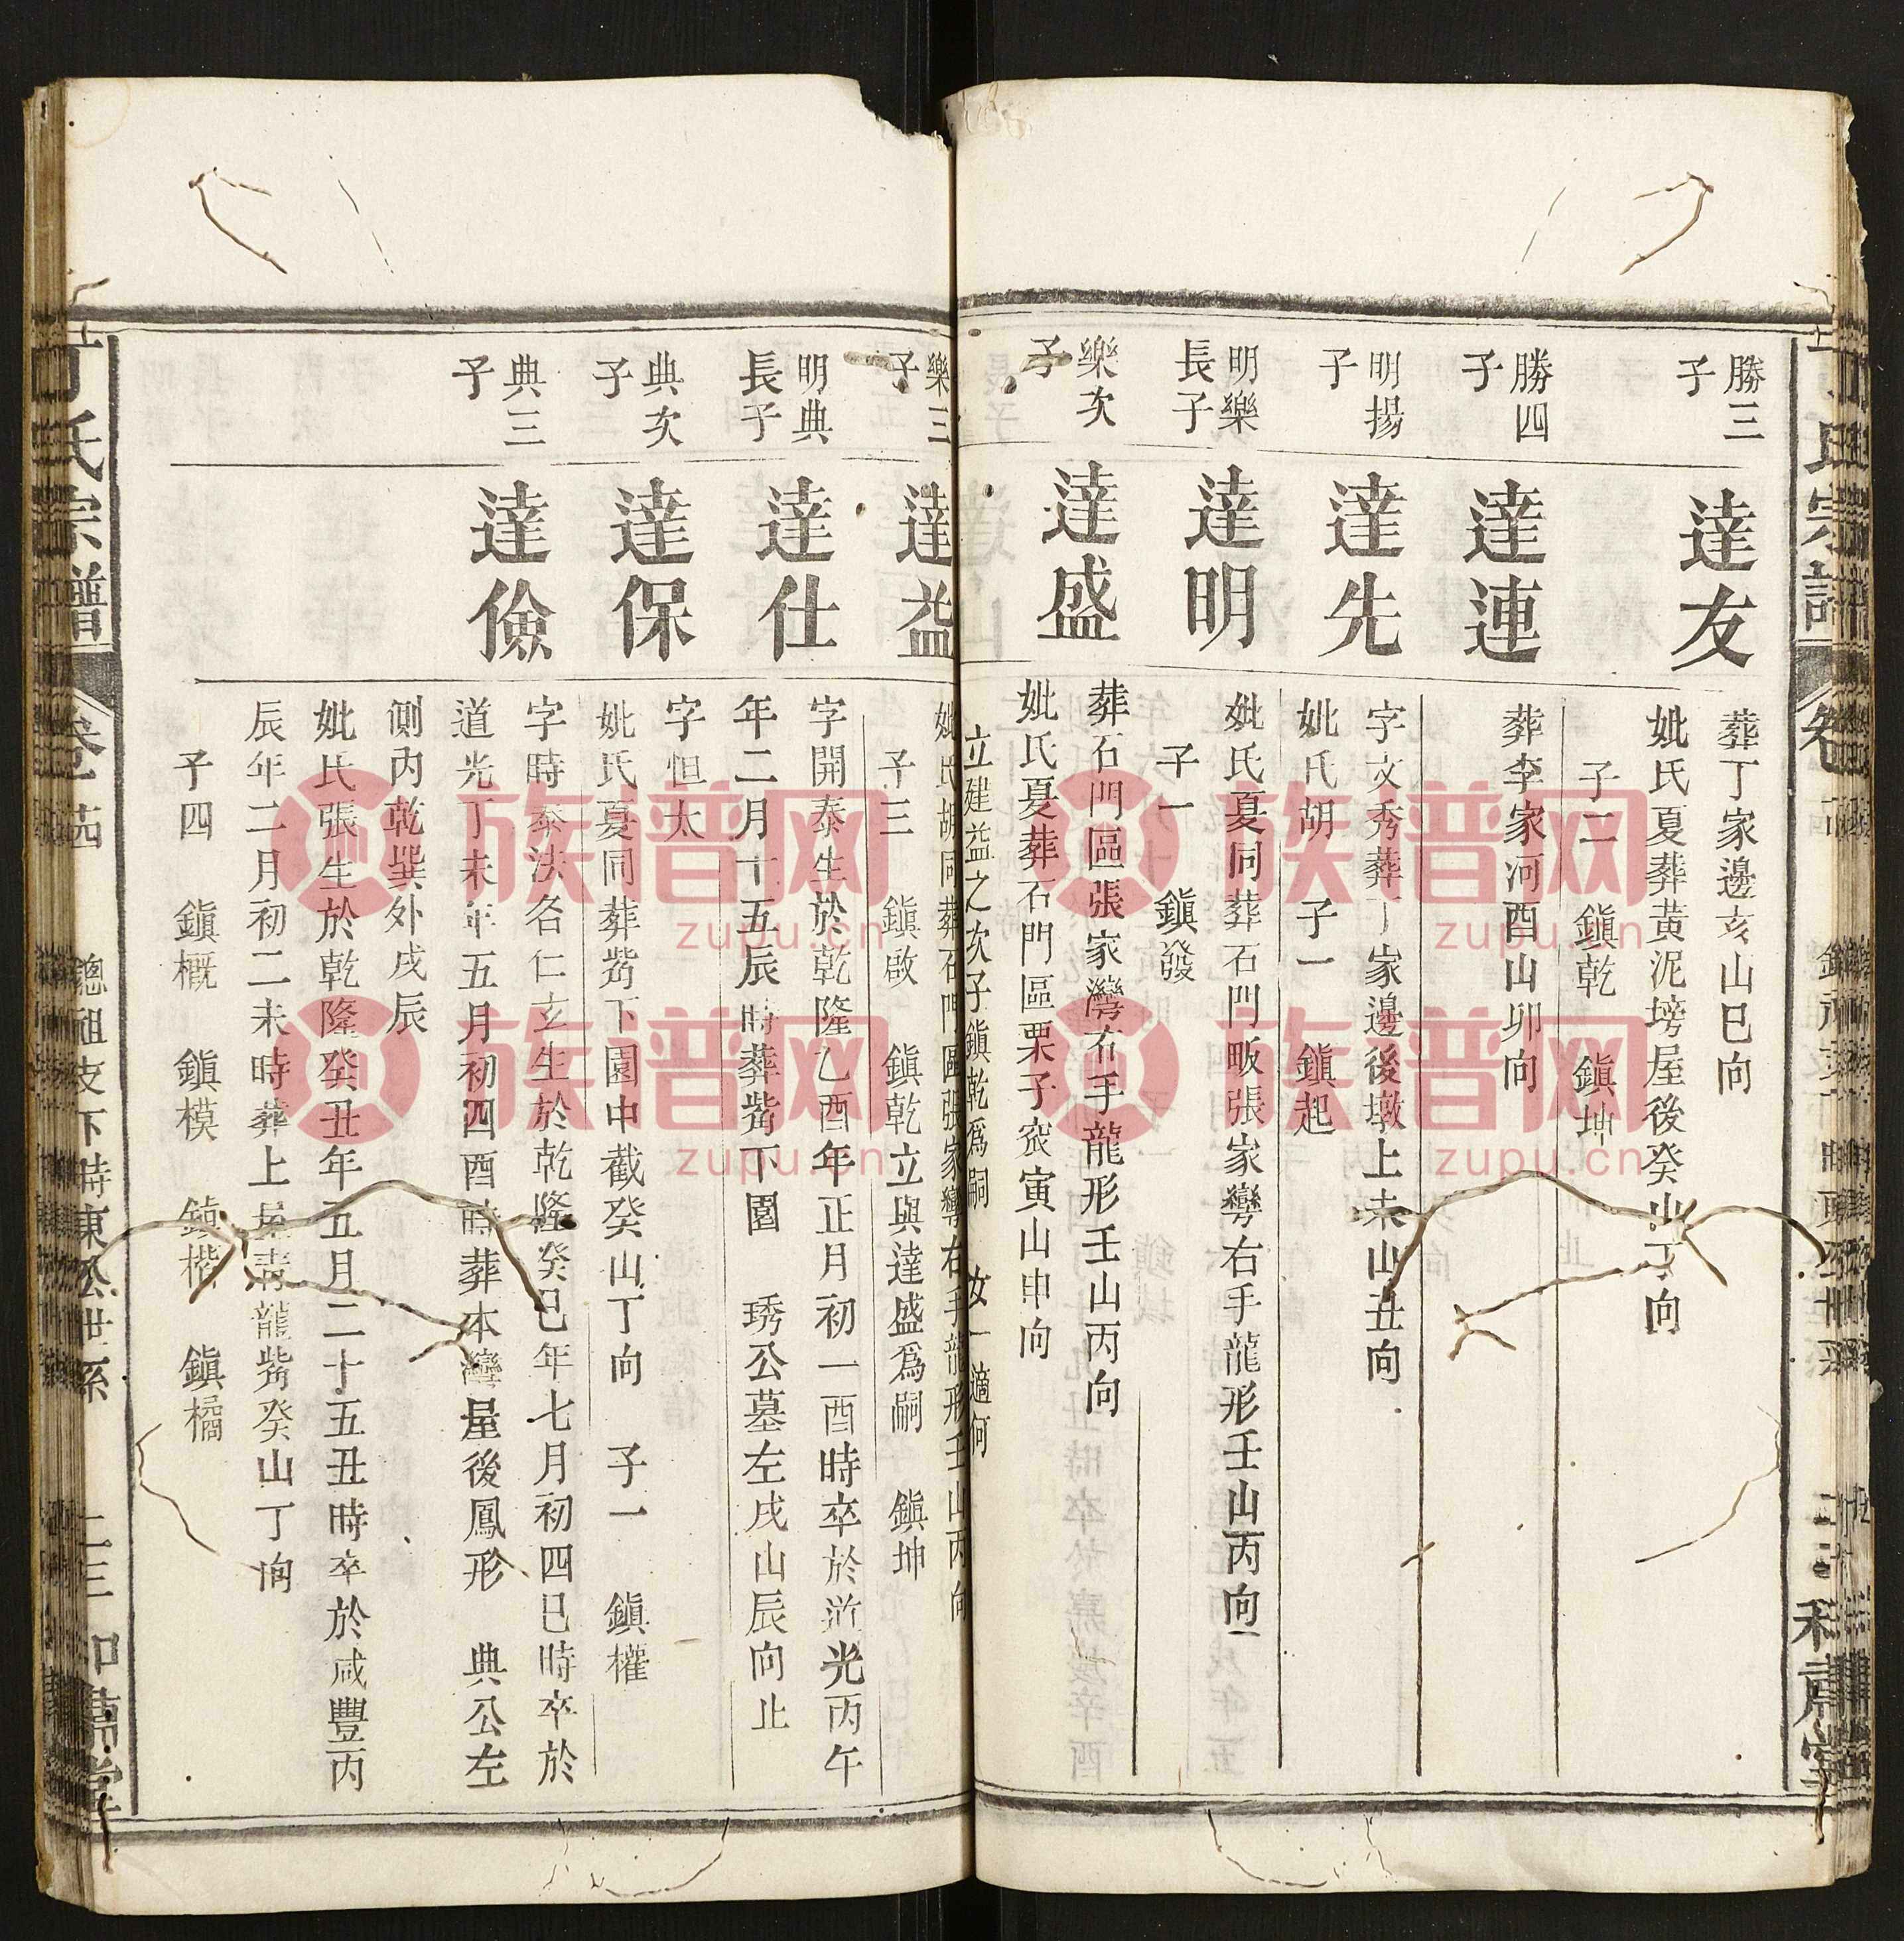 勝三子
達友
葬丁家邊亥山巳向
妣氏夏葬黃泥塝屋後癸山丁向
子二 鎮乾 鎮坤
勝四子
達連
葬李家河酉山卯向
明揚子
達先
字文秀葬丁家邊後墩上未山丑向
妣氏胡 子一 鎮起
明樂長子
達明
妣氏夏同葬石門畈張家灣右手龍形壬山丙向
子一 鎮發
樂次子
達盛
葬石門區張家灣右手龍形壬山丙向
妣氏夏葬石門區栗子山寅山申向
立建益之次子鎮乾爲嗣 女一適何
樂三子
達益
妣氏胡同葬石門區張家灣右手龍形壬山丙向
子三 鎮啟 鎮乾立與達盛爲嗣 鎮坤
明典長子
達仕
字開泰生於乾隆乙酉年正月初一酉時卒於道光丙午
年二月十五辰時葬嵆下園 琇公墓左戌山辰向止
典次子
達保
字恒太
妣氏夏同葬嵆下園中截癸山丁向 子一 鎮權
典三子
達儉
字時泰法名仁玄生於乾隆癸巳年七月初四巳時卒於
道光丁未年五月初四酉時葬本灣屋後鳳形 典公左
側內乾巽外戌辰
妣氏張生於乾隆癸丑年五月二十五丑時卒於咸豐丙
辰年二月初二未時葬上屋青龍嵆癸山丁向
子四 鎮概 鎮模 鎮楷 鎮橘
丁氏宗譜 卷一 總祖支下時東公世系 二三
族譜网
zupu.cn
族譜网
zupu.cn
族譜网
zupu.cn
族譜网
zupu.cn